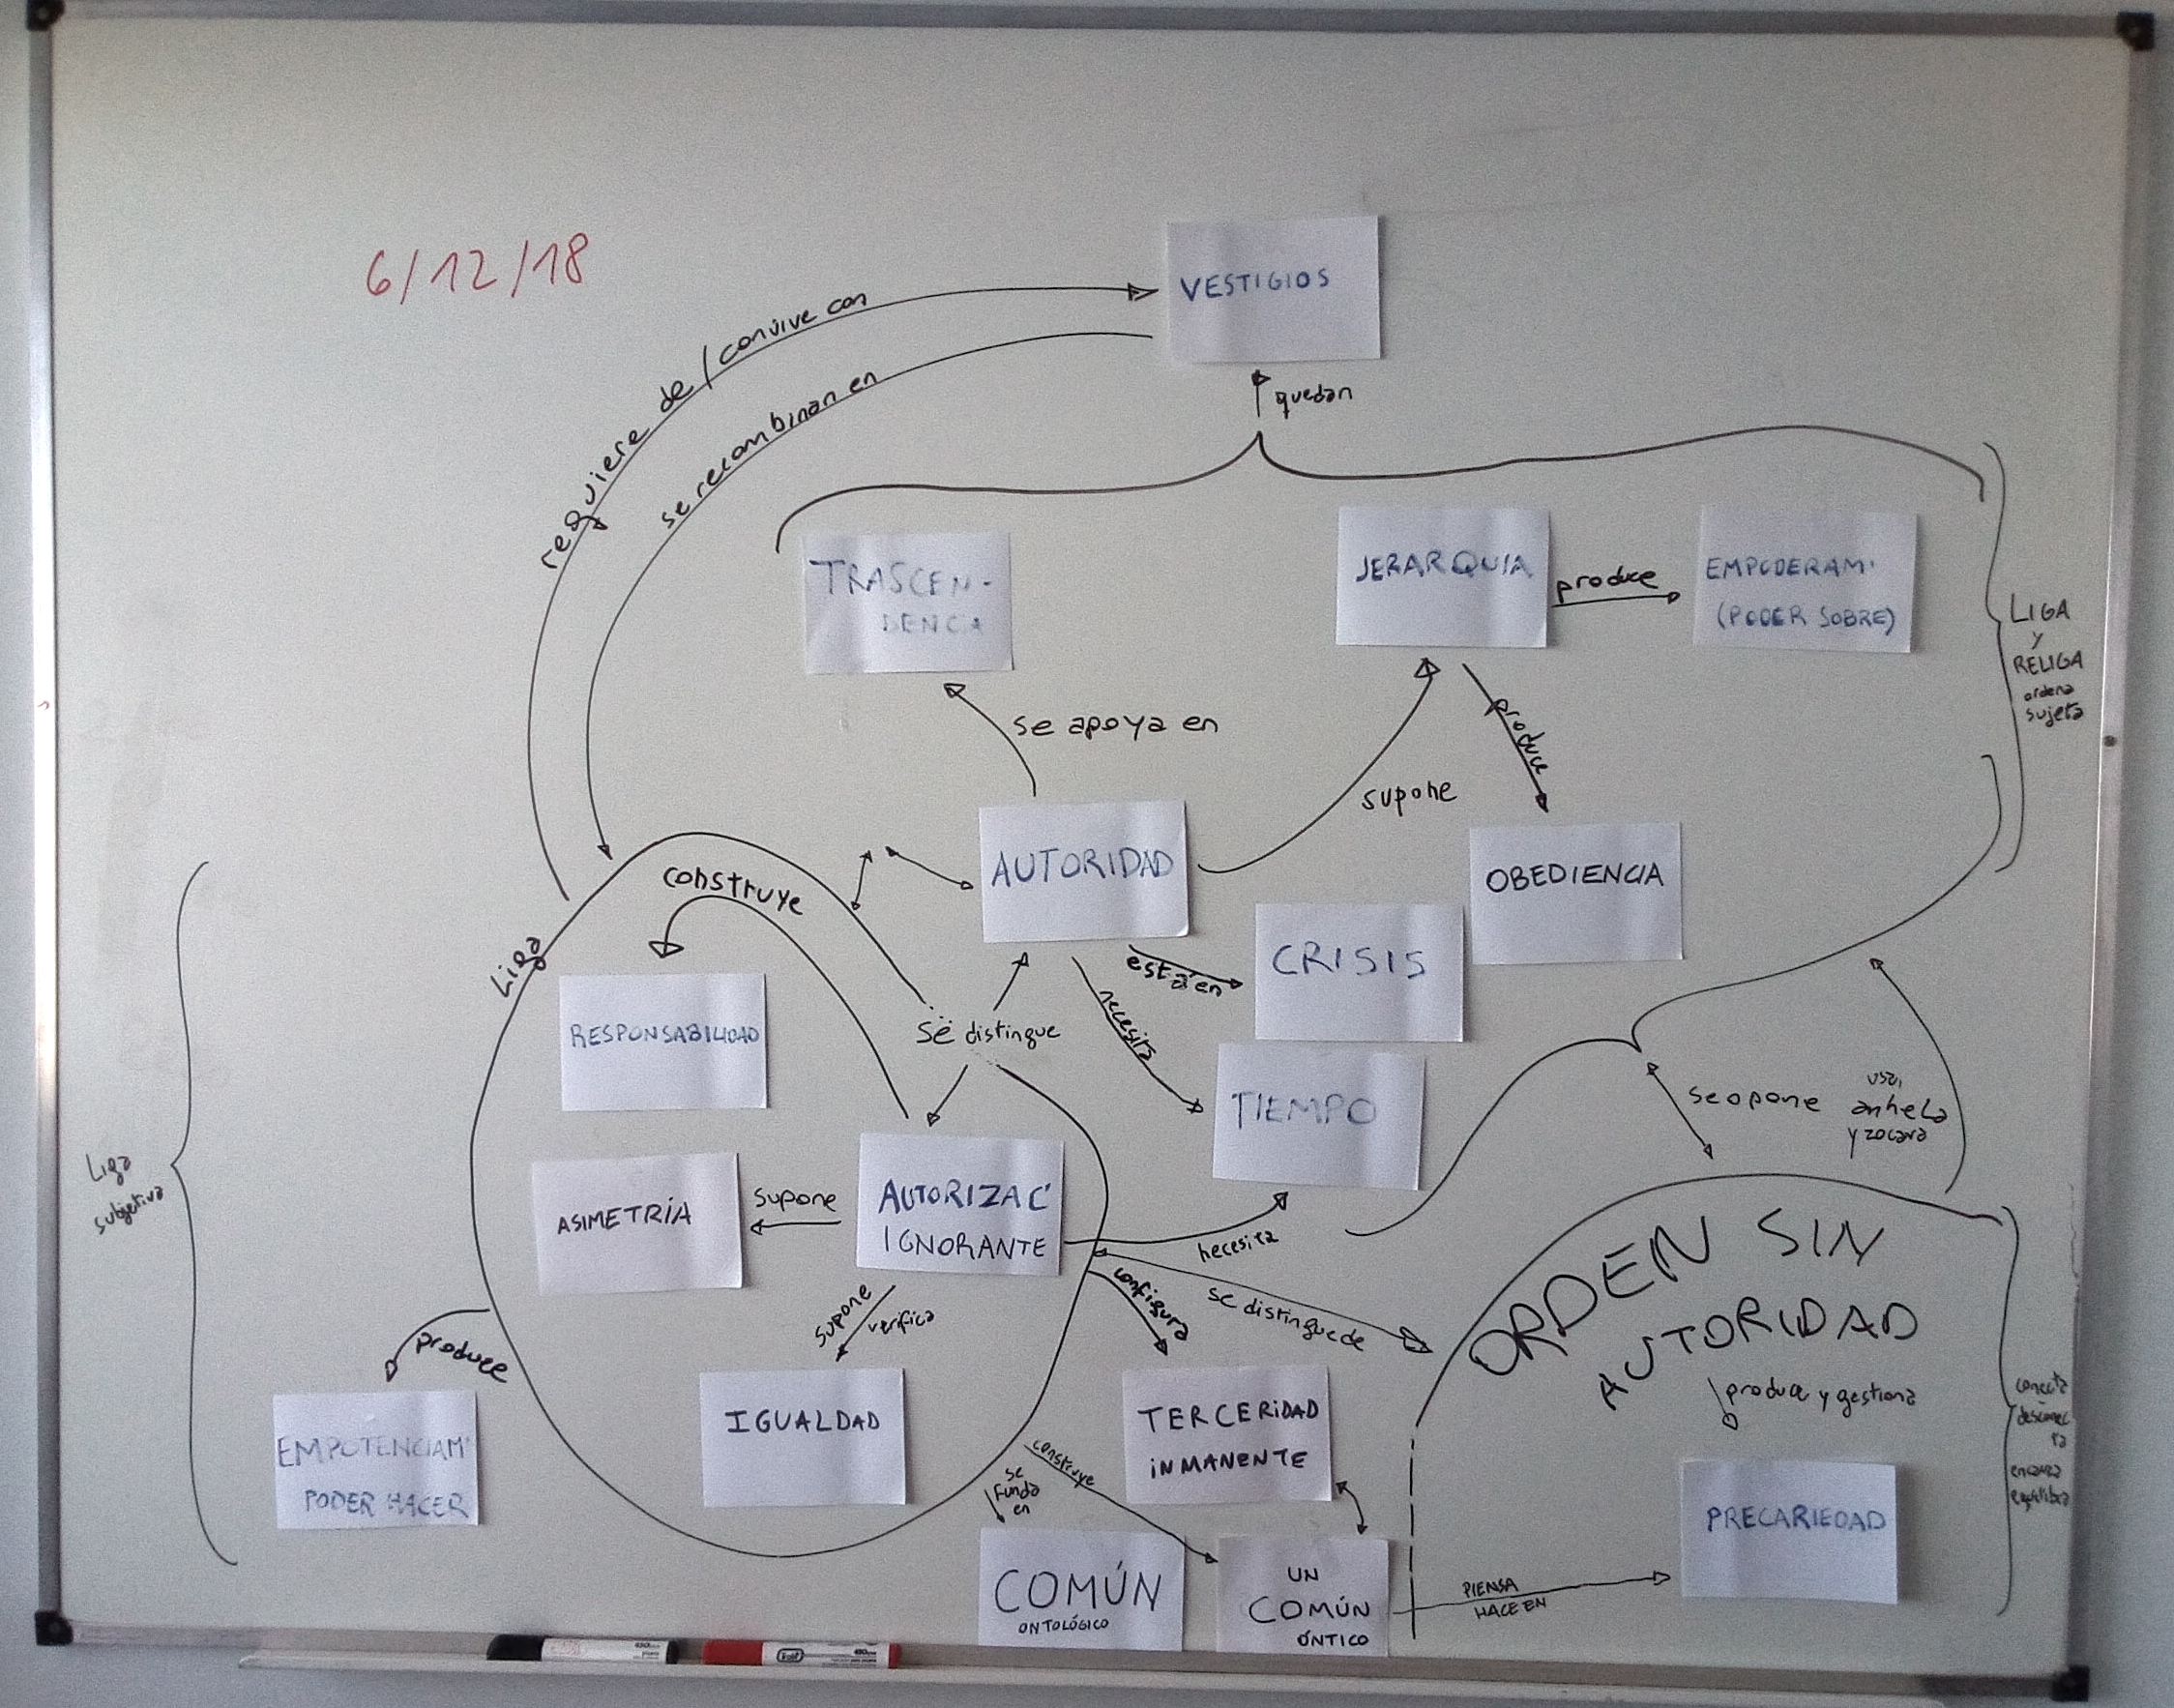 6/12/18
VESTIGIOS
requiere de / convive con
se recombinan en
quedan
TRASCEN-
DENCIA
JERARQUIA
produce
EMPODERAM'
(PODER SOBRE)
LIGA
Y
RELIGA
ordena
sujeta
se apoya en
supone
produce
AUTORIDAD
OBEDIENCIA
construye
Liga
está en
CRISIS
necesita
RESPONSABILIDAD
se distingue
TIEMPO
se opone
usa,
anhela
y
Liga
subjetiva
ASIMETRÍA
supone
AUTORIZAC'
IGNORANTE
necesita
se distingue de
configura
supone
verifica
produce
ORDEN SIN
AUTORIDAD
produce y gestiona
conecta
desconec
ta
equilibra
EMPOTENCIAM'
PODER HACER
IGUALDAD
TERCERIDAD
INMANENTE
construye
se
funda
en
PRECARIEDAD
COMÚN
ONTOLÓGICO
UN
COMÚN
ÓNTICO
PIENSA
HACE EN